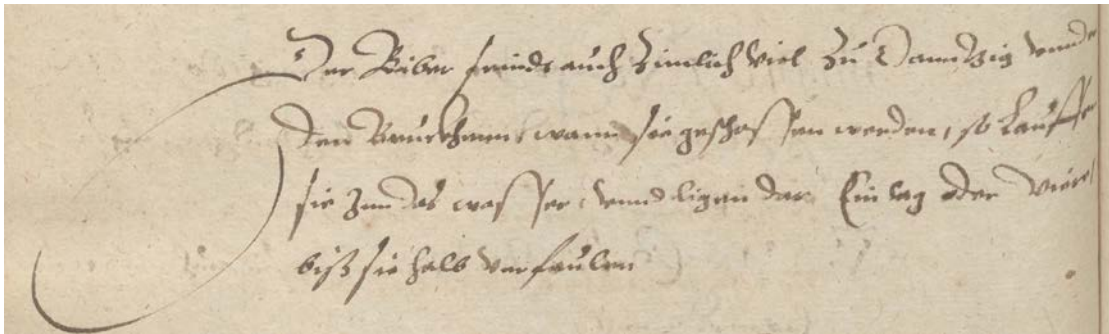 Der Biber seindt auch Zimlich Viel Zu Dantzig vnnder
den Bruckhenn, wann sie geschossen werden, so Lauffen
sie Inn das wasser, vnnd ligen dar Ein tag oder Viere,
biß sie halb verfaulen